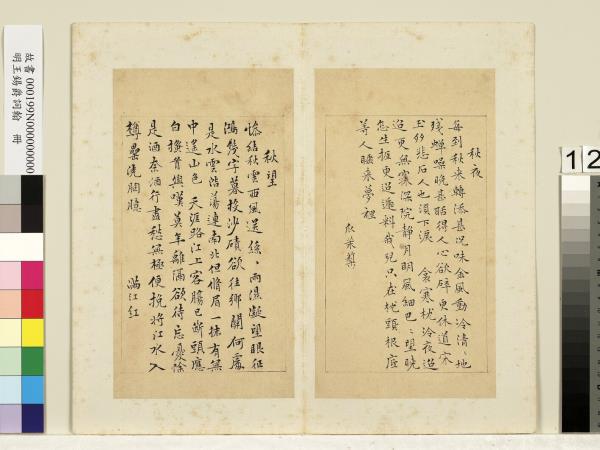 秋夜
每到秋來轉添甚況味金風動冷清﹑地
殘蟬噪晚甚聒得人心欲碎更休道宋
玉多悲石人也須下淚　衾寒枕冷夜迢
迢更無寐深院靜月明風細巴﹑望曉
怎生捱更迢遞料我兒只在枕頭根底
等人睡來夢裡
秋望
慘結秋雲西風送絲﹑雨濕凝望眼征
鴻幾字暮投沙磧欲往鄉關何處
是水雲浩蕩連南北但脩眉一抹有無
中遙山色　天涯路江上客腸已斷頭應
白搔首興嘆暮年離隔欲待忘憂除
是酒奈酒行盡愁無極便挽將江水入
罇罍澆胸臆　滿江紅
故書 000199N000000000
明王錫爵詞翰 冊
1 2